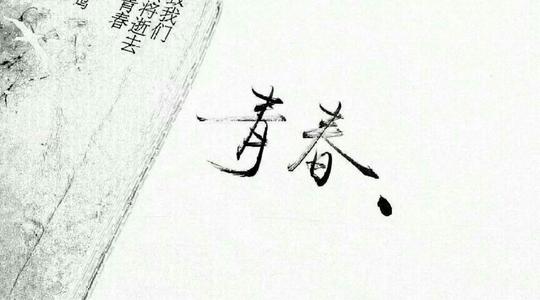 致我们
将逝去
青春
青春、